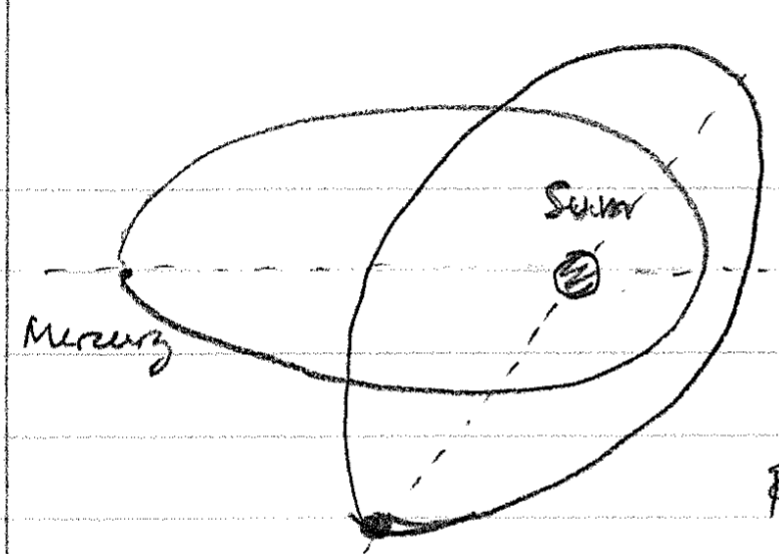 Sun
Mercury